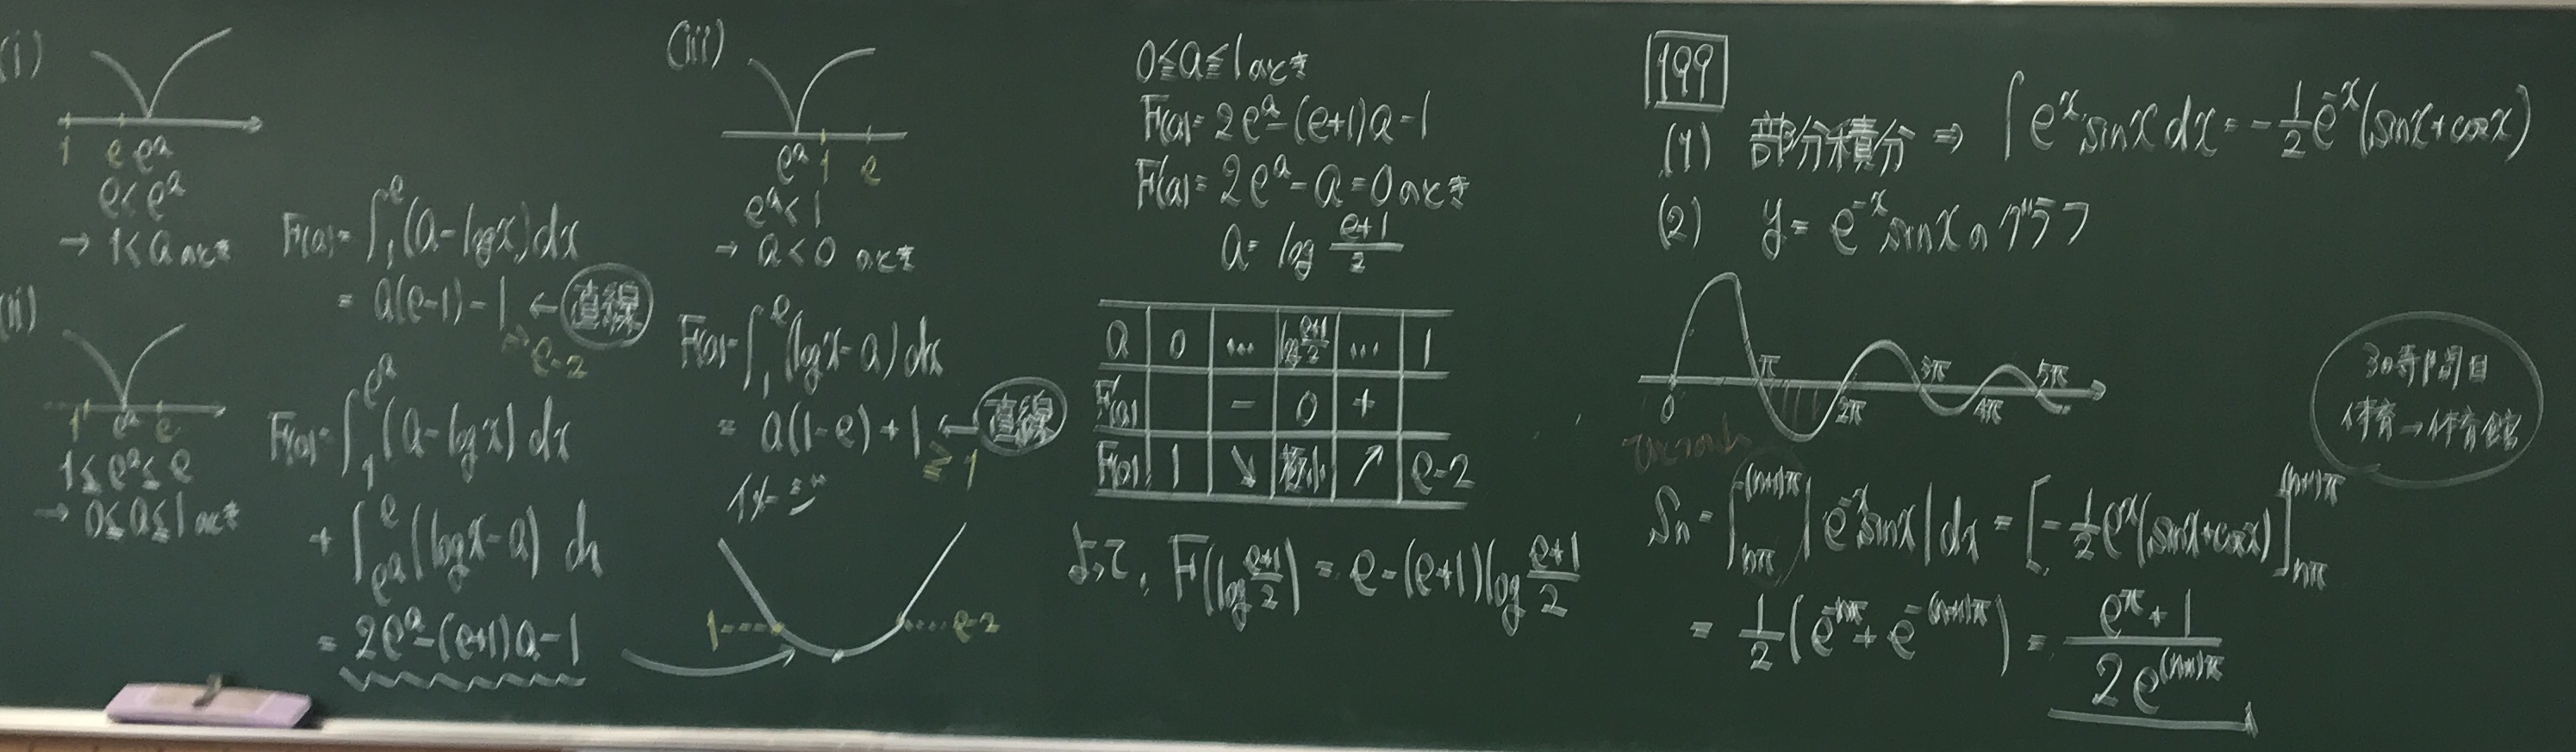 (i)
1 e e^a
e < e^a
→ 1 < a のとき
F(a) = ∫_1^e (a - log x) dx
= a(e-1) - 1 ← 直線
> e-2
(ii)
1 e^a e
1 ≦ e^a ≦ e
→ 0 ≦ a ≦ 1 のとき
F(a) = ∫_1^{e^a} (a - log x) dx
+ ∫_{e^a}^e (log x - a) dx
= 2e^a - (e+1)a - 1
(iii)
e^a 1 e
e^a < 1
→ a < 0 のとき
F(a) = ∫_1^e (log x - a) dx
= a(1-e) + 1 ← 直線
≧ 1
イメージ
1 e-2
0 ≦ a ≦ 1 のとき
F(a) = 2e^a - (e+1)a - 1
F'(a) = 2e^a - a = 0 のとき
a = log (e+1)/2
a 0 … log (e+1)/2 … 1
F'(a) - 0 +
F(a) 1 ↘ 極小 ↗ e-2
よって, F(log (e+1)/2) = e - (e+1) log (e+1)/2
199
(1) 部分積分 ⇒ ∫ e^x sin x dx = - 1/2 e^-x (sin x + cos x)
(2) y = e^-x sin x のグラフ
0 π 2π 3π 4π 5π
S_n = ∫_{nπ}^{(n+1)π} |e^-x sin x| dx = [- 1/2 e^x (sin x + cos x)]_{nπ}^{(n+1)π}
= 1/2 (e^-nπ + e^-(n+1)π) = (e^π + 1)/(2e^(n+1)π)
3の時間目
体育→体育館